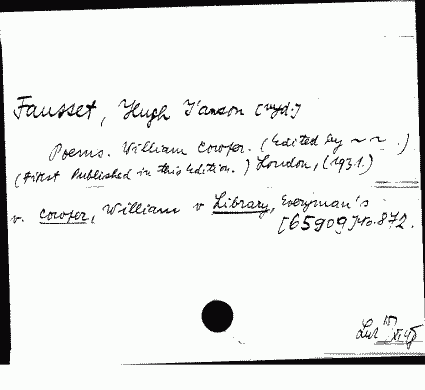 Fausset, Hugh I'anson [vyd.]
Poems. William Cowper. (Edited by ~ ~ .)
(First Published in this edition.) London, (1931.)
v. Cowper, William v Library, Everyman's
[65909] No. 872.